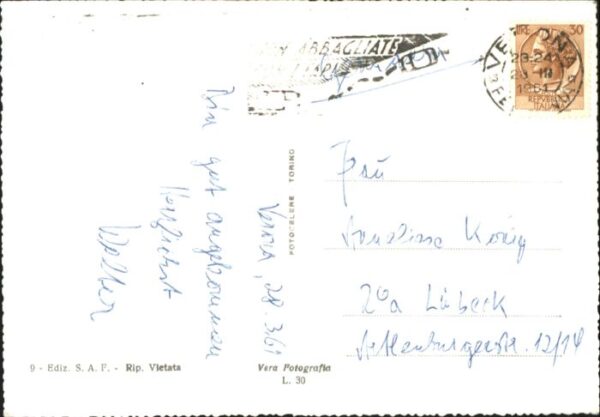 NON ABBAGLIATE
LIRE 30
VERONA
23-24
1961
FE
REPVBBLICA
ITALIANA
Verona, 28.3.61
Bin gut angekommen
Herzlichst
Walter
FOTOCELERE TORINO
Frau
Anneliese König
24a Lübeck
12/14
9 - Ediz. S. A. F. - Rip. Vietata
Vera Fotografia
L. 30